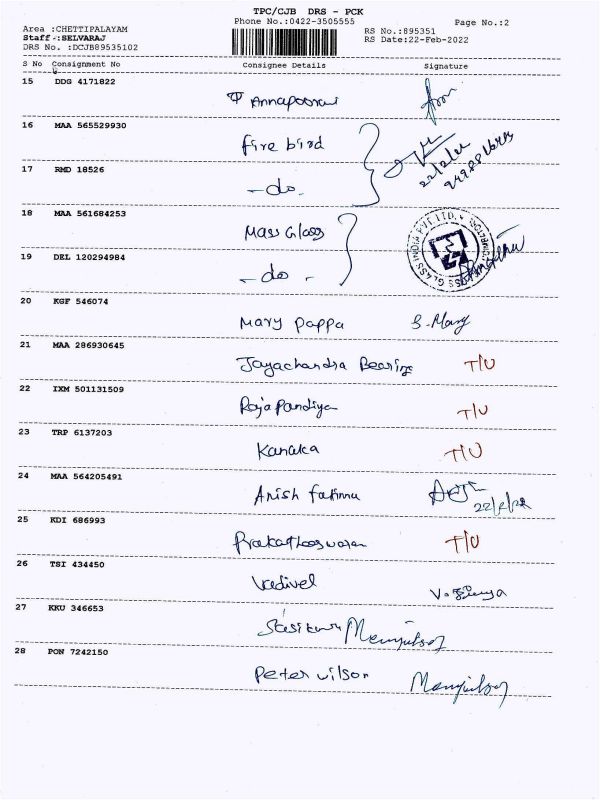 TPC/CJB DRS - PCK
Phone No.:0422-3505555
Page No.:2
Area :CHETTIPALAYAM
Staff :SELVARAJ
DRS No. :DCJB89535102
RS No.:895351
RS Date:22-Feb-2022
S No Consignment No Consignee Details Signature
15 DDG 4171822
Annapoorani
16 MAA 565529930
fire bird
22/2/22
17 RMD 18526
-do.
18 MAA 561684253
Mass Glass
GLASS INDIA PVT LTD.
19 DEL 120294984
-do-
20 KGF 546074
Mary pappa S. Mary
21 MAA 286930645
Jayachandra Bearing T/U
22 IXM 501131509
Raja Pandiyan T/U
23 TRP 6137203
Kanaka T/U
24 MAA 564205491
Anish fatima
22/2/22
25 KDI 686993
Prakatheeswaran T/U
26 TSI 434450
Vadivel
27 KKU 346653
28 PON 7242150
Peter wilson